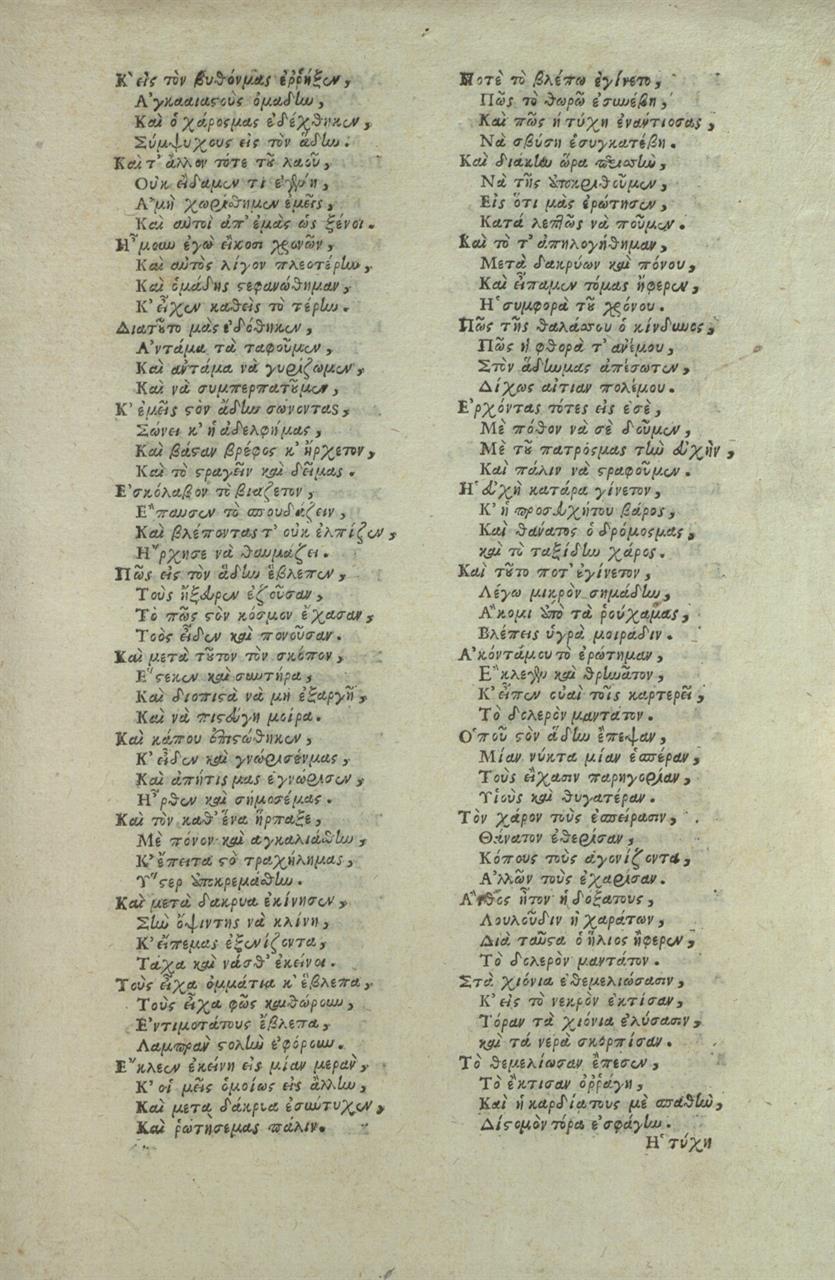 Κ' εἰς τὸν βυθόνμας ἐῤῥήξεν,
Α'γκαλιαςοὺς ὁμαδὶν,
Καὶ ὁ χάροςμας ἐδέχθηκεν,
Σύμψυχους εἰς τὸν ἅδην.
Καὶ τ' ἄλλον τότε τοῦ λαοῦ,
Οὐκ εἴδαμεν τί ἐγένη,
Α'μὴ χωρίθημεν ἐμεῖς,
Καὶ αὐτοὶ ἀπ' ἐμᾶς ὡς ξένοι.
Η῎μουν ἐγὼ εἴκοσι χρονῶν,
Καὶ αὐτὸς λίγον πλεοτέρην,
Καὶ ὁμάδης στεφανώθημαν,
Κ' εἶχεν καθεὶς τὸ τέρην.
Διατοῦτο μᾶς ἐδόθηκεν,
Α'ντάμα τὰ ταφοῦμεν,
Καὶ ἀντάμα νὰ γυρίζωμεν,
Καὶ νὰ συμπερπατοῦμεν,
Κ' ἐμεῖς στὸν ἅδην σώνοντας,
Σώνει κ' ἡ ἀδελφήμας,
Καὶ βάσταν βρέφος κ' ἤρχετον,
Καὶ τὸ στραγεῖν καὶ δεῖμας.
Ε'σκόλαβον τὸ βιάζετον,
Ε῎παυσεν τὸ σπουδάζειν,
Καὶ βλέποντας τ' οὐκ ἐλπίζεν,
Η῎ρχησε νὰ θαυμάζει.
Πῶς εἰς τὸν ἅδην ἔβλεπεν,
Τοὺς ἤξευρεν ἐζοῦσαν,
Τὸ πῶς στὸν κόσμον ἔχασαν,
Τοὺς εἶδεν καὶ πονοῦσαν.
Καὶ μετὰ τοῦτον τὸν σκόπον,
Ε῞στεκεν καὶ συντήρα,
Καὶ διοπιστὰ νὰ μὴ ἐξαργῆ,
Καὶ νὰ πιστεύγη μοίρα.
Καὶ κάπου ἐπιστώθηκεν,
Κ' εἶδεν καὶ γνώρισένμας,
Καὶ ἀπήτις μας ἐγνώρισεν,
Η῏ρθεν καὶ σήμοσέμας.
Καὶ τὸν καθ' ἕνα ἥρπαξε,
Μὲ πόνον καὶ αγκαλιάσθην,
Κ' ἔπειτα στὸ τραχήλημας,
Υ῞στερ ὑποκρεμάσθην.
Καὶ μετὰ δάκρυα ἐκίνησεν,
Στὴν ὄψιντης νὰ κλίνη,
Κ' εἴπεμας ἐξωνίζοντα,
Τάχα καὶ νάσθ' ἐκεῖνοι.
Τοὺς εἶχα ὀμμάτια κ' ἔβλεπα,
Τοὺς εἶχα φῶς καὶθώρουν,
Ε'ντιμοτάτους ἔβλεπα,
Λαμπρὰν στολὴν ἐφόρουν.
Ε῎κλεεν ἐκείνη εἰς μίαν μερὰν,
Κ' οἱ μεῖς ὁμοίως εἰς ἄλλην,
Καὶ μετα δάκρια ἐσυντυχεν,
Καὶ ῥώτησεμας πάλιν.
Ποτὲ τὸ βλέπω ἐγίνετο,
Πῶς τὸ θωρῶ ἐσυνέβη,
Καὶ πῶς ἡ τύχη ἐναντιοσας,
Νὰ σβύση ἐσυγκατέβη.
Καὶ διάκην ὥρα περισσὴν,
Νὰ τῆς ὑποκριθοῦμεν,
Εἰς ὅτι μᾶς ἐρώτησεν,
Κατά λεπτῶς νὰ ποῦμεν.
Καὶ τὸ τ' ἀπηλογήθημαν,
Μετὰ δακρύων καὶ πόνου,
Καὶ εἴπαμεν τόμας ἤφερεν,
Η῾ συμφορὰ τοῦ χρόνου.
Πῶς τῆς θαλάσσου ὁ κίνδυνος,
Πῶς ἡ φθορὰ τ' ἀνέμου,
Στὸν ἅδηνμας ἀπέσωσεν,
Δίχως αἰτίαν πολέμου.
Ε'ρχόντας τότες εἰς ἐσὲ,
Μὲ πόθον νὰ σὲ δοῦμεν,
Μὲ τοῦ πατρόςμας τὴν εὐχὴν,
Καὶ πάλιν νὰ στραφοῦμεν.
Η῾ εὐχὴ κατάρα γίνετον,
Κ' ἡ προσευχήτου βάρος,
Καὶ θάνατος ὁ δρόμοςμας,
καὶ τὸ ταξίδιν χάρος.
Καὶ τοῦτο ποτ' ἐγίνετον,
Λέγω μικρὸν σημάδιν,
Α῎κομι ἀπὸ τὰ ῥοῦχαμας,
Βλέπεις ὑγρὰ μοιράδιν.
Α'κόντάμου τὸ ἐρώτημαν,
Ε῎κλεγεν καὶ θρηνᾶτον,
Κ' εἶπεν οὐαὶ τοῖς καρτερεῖ,
Τὸ δολερὸν μαντάτον.
Ο῾ποῦ στὸν ἅδην ἔπεψαν,
Μίαν νύκτα μίαν ἑσπέραν,
Τοὺς εἴχασιν παρηγορίαν,
Υἱοὺς καὶ θυγατέραν.
Τὸν χάρον τοὺς ἐσπείρασιν,
Θάνατον ἐθερίσαν,
Κόπους τοὺς ἀγονίζοντα,
Α'λλῶν τοὺς ἐχαρίσαν.
Α῎νθος ἦτον ἡ δοξάτους,
Λουλοῦδιν ἡ χαράτων,
Διὰ ταῦτα ὁ ἥλιος ἤφερεν,
Τὸ δολερὸν μαντάτον.
Στὰ χιόνια ἐθεμελιώσασιν,
Κ' εἰς τὸ νεκρὸν ἐκτίσαν,
Τόραν τὰ χιόνια ἐλύσασιν,
καὶ τὰ νερὰ σκορπίσαν.
Τὸ θεμελίωσαν ἔπεσεν,
Τὸ ἔκτισαν ὀῤῥάγη,
Καὶ ἡ καρδίατους μὲ σπαθὴν,
Δίστομὸν τόρα ἐσφάγην.
Η῾ τύχη